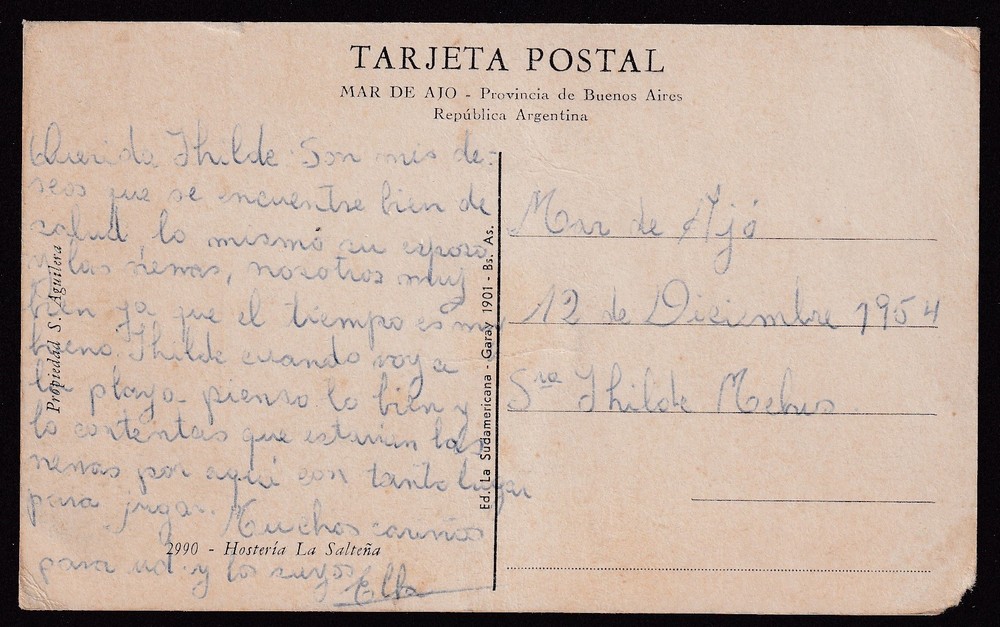 TARJETA POSTAL
MAR DE AJO - Provincia de Buenos Aires
República Argentina
Querida Thilde: Son mis de-
seos que se encuentre bien de
salud, lo mismo su esposo
y las nenas, nosotros muy
bien ya que el tiempo es muy
bueno. Thilde cuando voy a
la playa pienso lo bien y
lo contentas que estarían las
nenas por aquí con tanto lugar
para jugar. Muchos cariños
para ud. y los suyos
Elba
2990 - Hostería La Salteña
Propiedad S. Aguilera
Ed. La Sudamericana - Garay 1901 - Bs. As.
Mar de Ajó
12 de Diciembre 1954
Sra Thilde Mehus